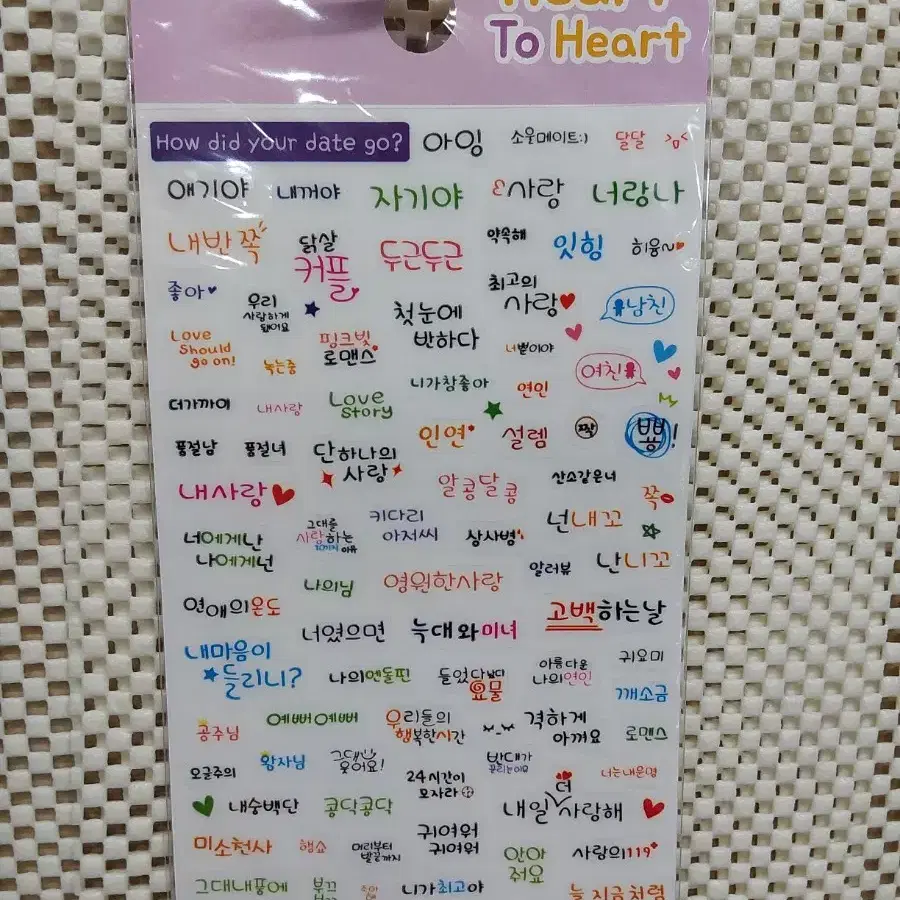 To Heart
How did your date go?
아잉
소울메이트:)
달달
얘기야
내꺼야
자기야
사랑
너랑나
내반쪽
닭살
커플
두근두근
약속해
잇힝
히융~
좋아
우리
사랑하게
됐어요
첫눈에
반하다
최고의
사랑
남친
Love
Should
go on!
녹는중
핑크빛
로맨스
너뿐이야
여친
더가까이
내사랑
Love
Story
니가참좋아
연인
인연
설렘
짝
뽕!
품절남
품절녀
단하나의
사랑
알콩달콩
산소같은너
쪽
내사랑
너에게난
나에게넌
그대를
사랑하는
이유
키다리
아저씨
상사병
넌내꼬
난니꼬
알러뷰
나의님
영원한사랑
연애의온도
너였으면
늑대와미녀
고백하는날
내마음이
들리니?
나의엔돌핀
들었다놨다
요물
아름다운
나의연인
귀요미
깨소금
공주님
예뻐예뻐
우리들의
행복한시간
격하게
아껴요
로맨스
오글주의
왕자님
그대가
웃어요!
24시간이
모자라
반대가
끌리는이유
너는내운명
내숭백단
콩닥콩닥
내일 더 사랑해
미소천사
행쇼
머리부터
발끝까지
귀여워
귀여워
안아
줘요
사랑의119
그대내품에
니가최고야
늘지금처럼